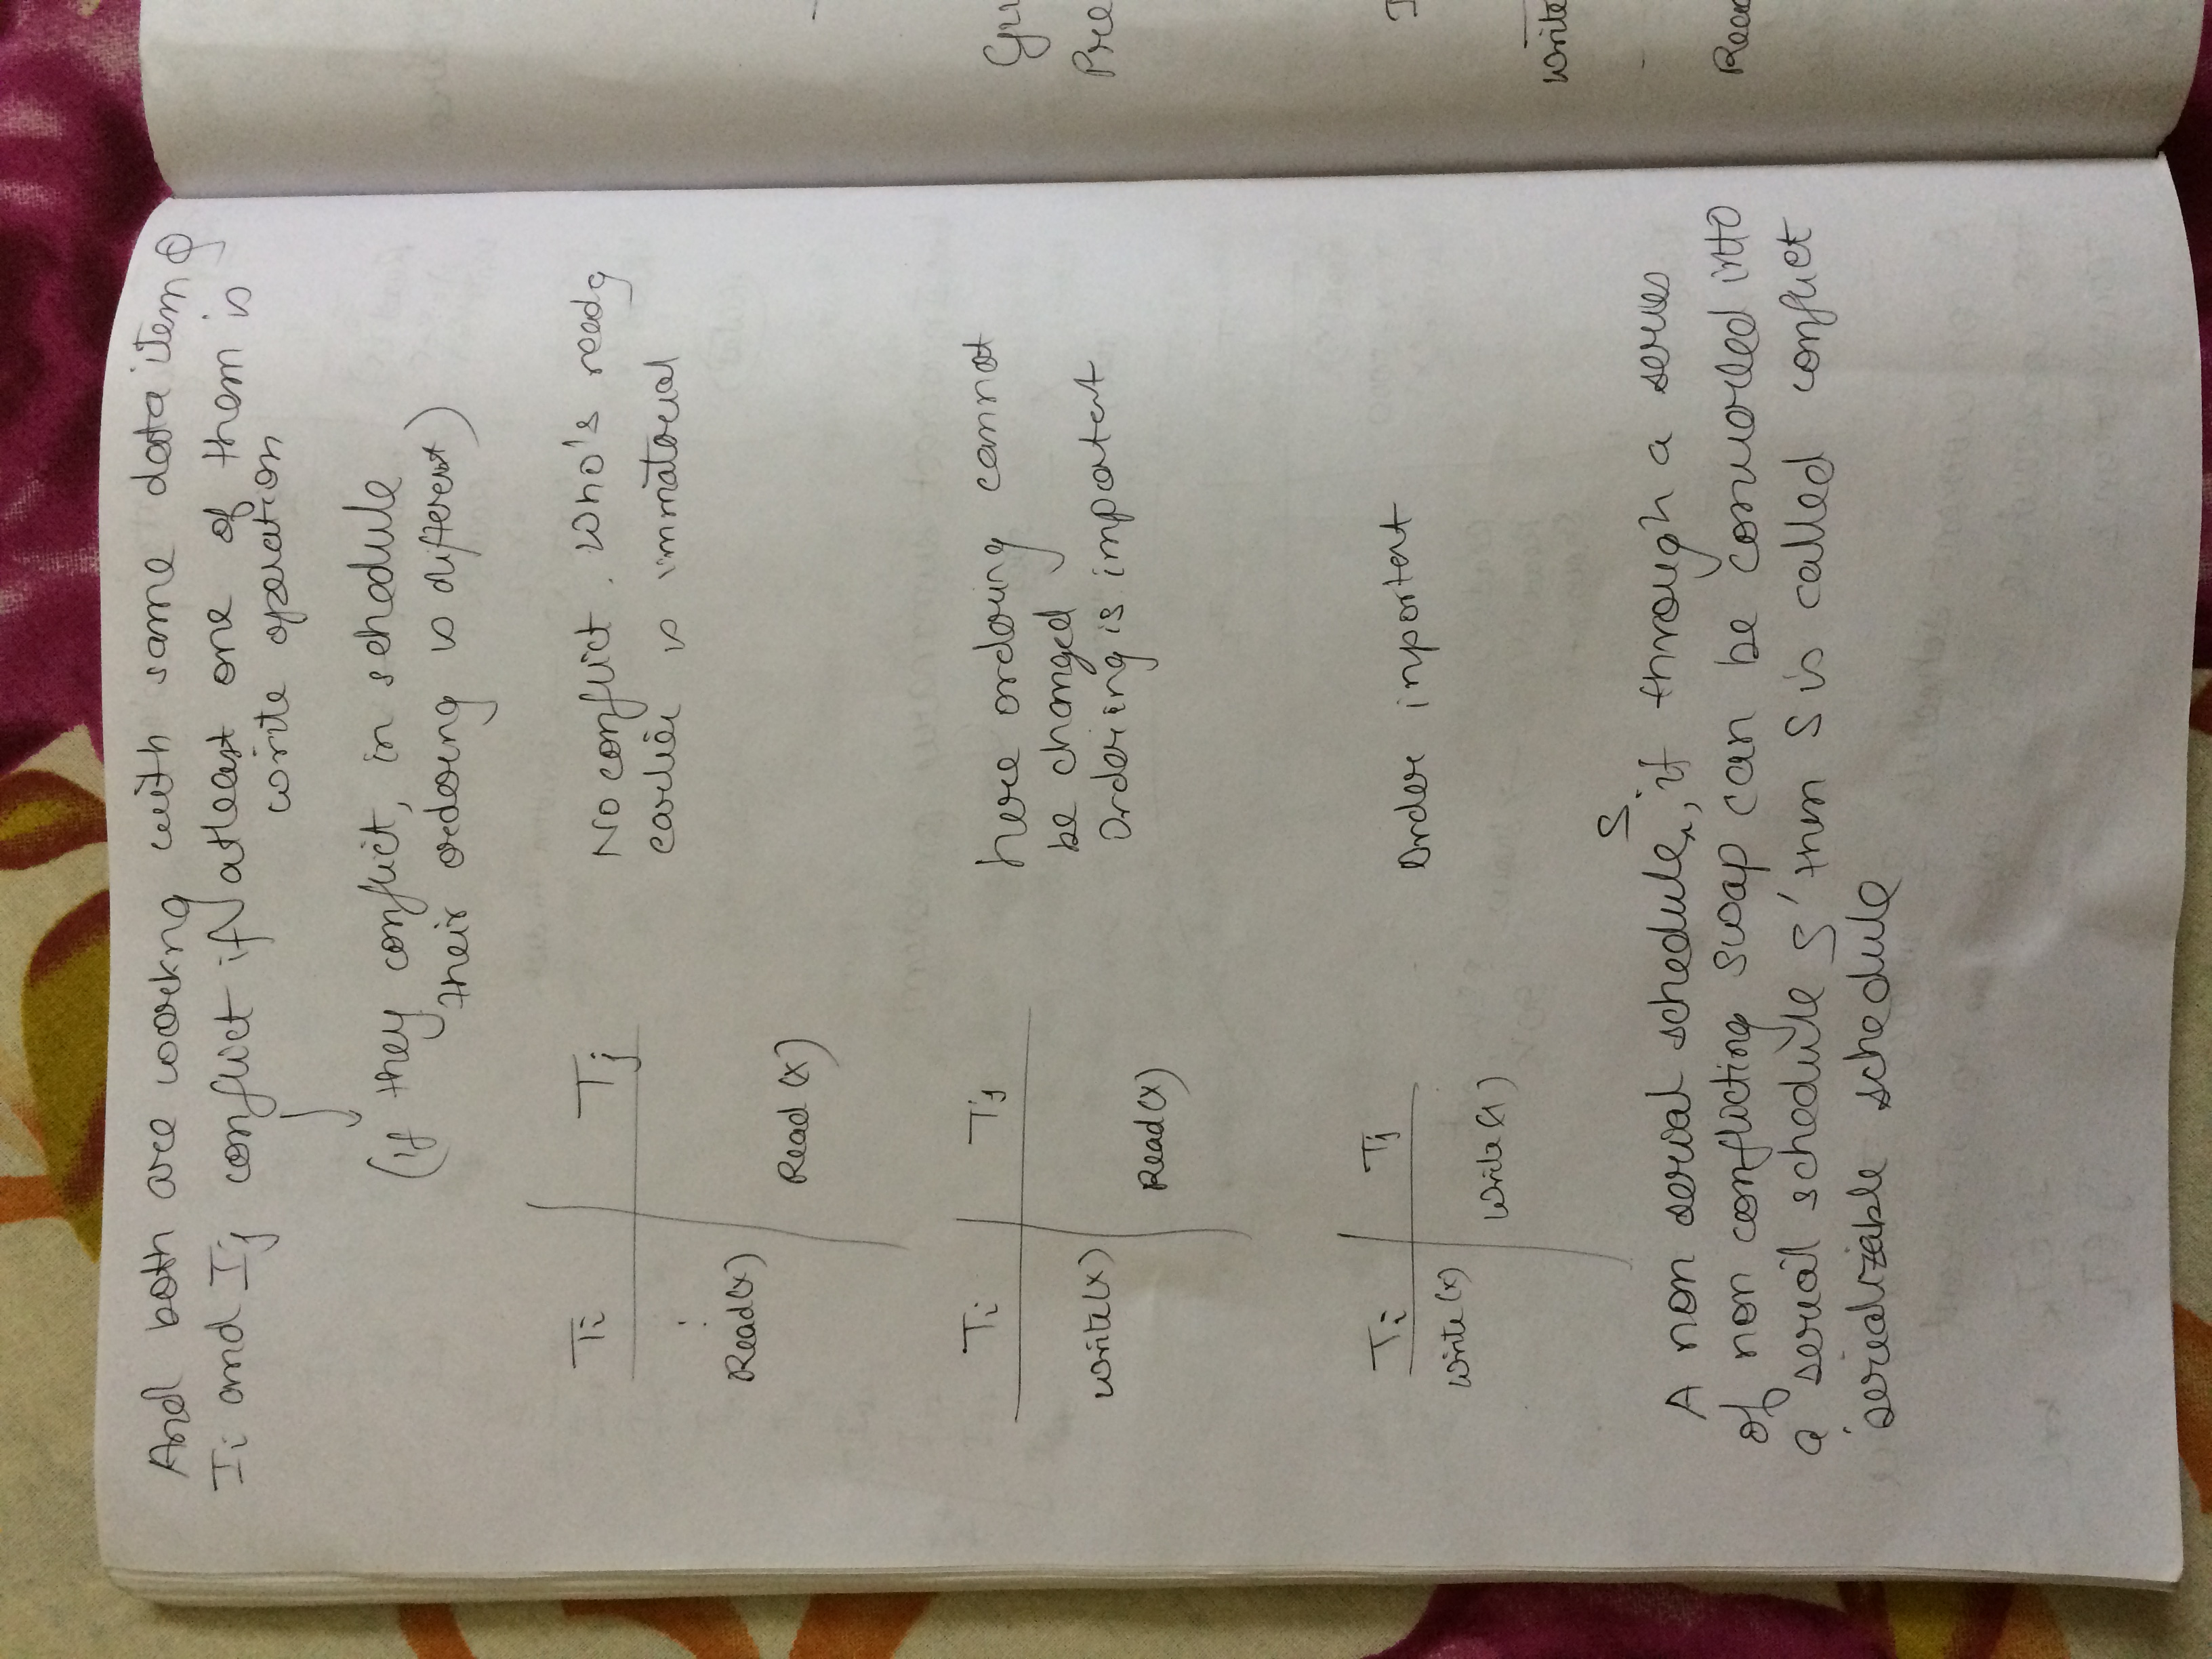 And both are workng with same data item Q
Ii and Ij conflict if atleast one of them is
write operation
(if they conflict, in schedule
their ordering is different)
Ti Tj
No conflict. Who's readg
earlier is immaterial
Read(x)
Read (x)
Ti Tj
here ordering cannot
be changed
Ordering is importent
Write(x)
Read(x)
Ti Tj
Order inportent
Write(x)
Write(x)
S
A non serial schedule, if through a series
of non conflicting swap can be converted into
a serial schedule S' then S is called conflict
serializable schedule
Pre
Write
Read